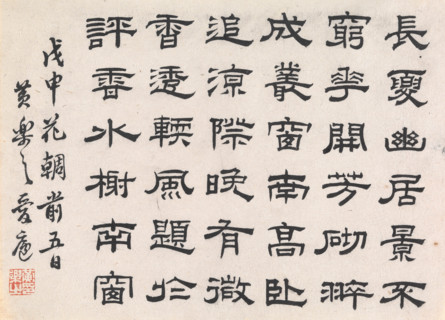 長夏幽居景不
窮華開芳砌翠
成叢窗南高臥
追涼際晚有微
香透輭風題於
評香水榭南窗
戊申花朝前五日
黃樂之愛廬